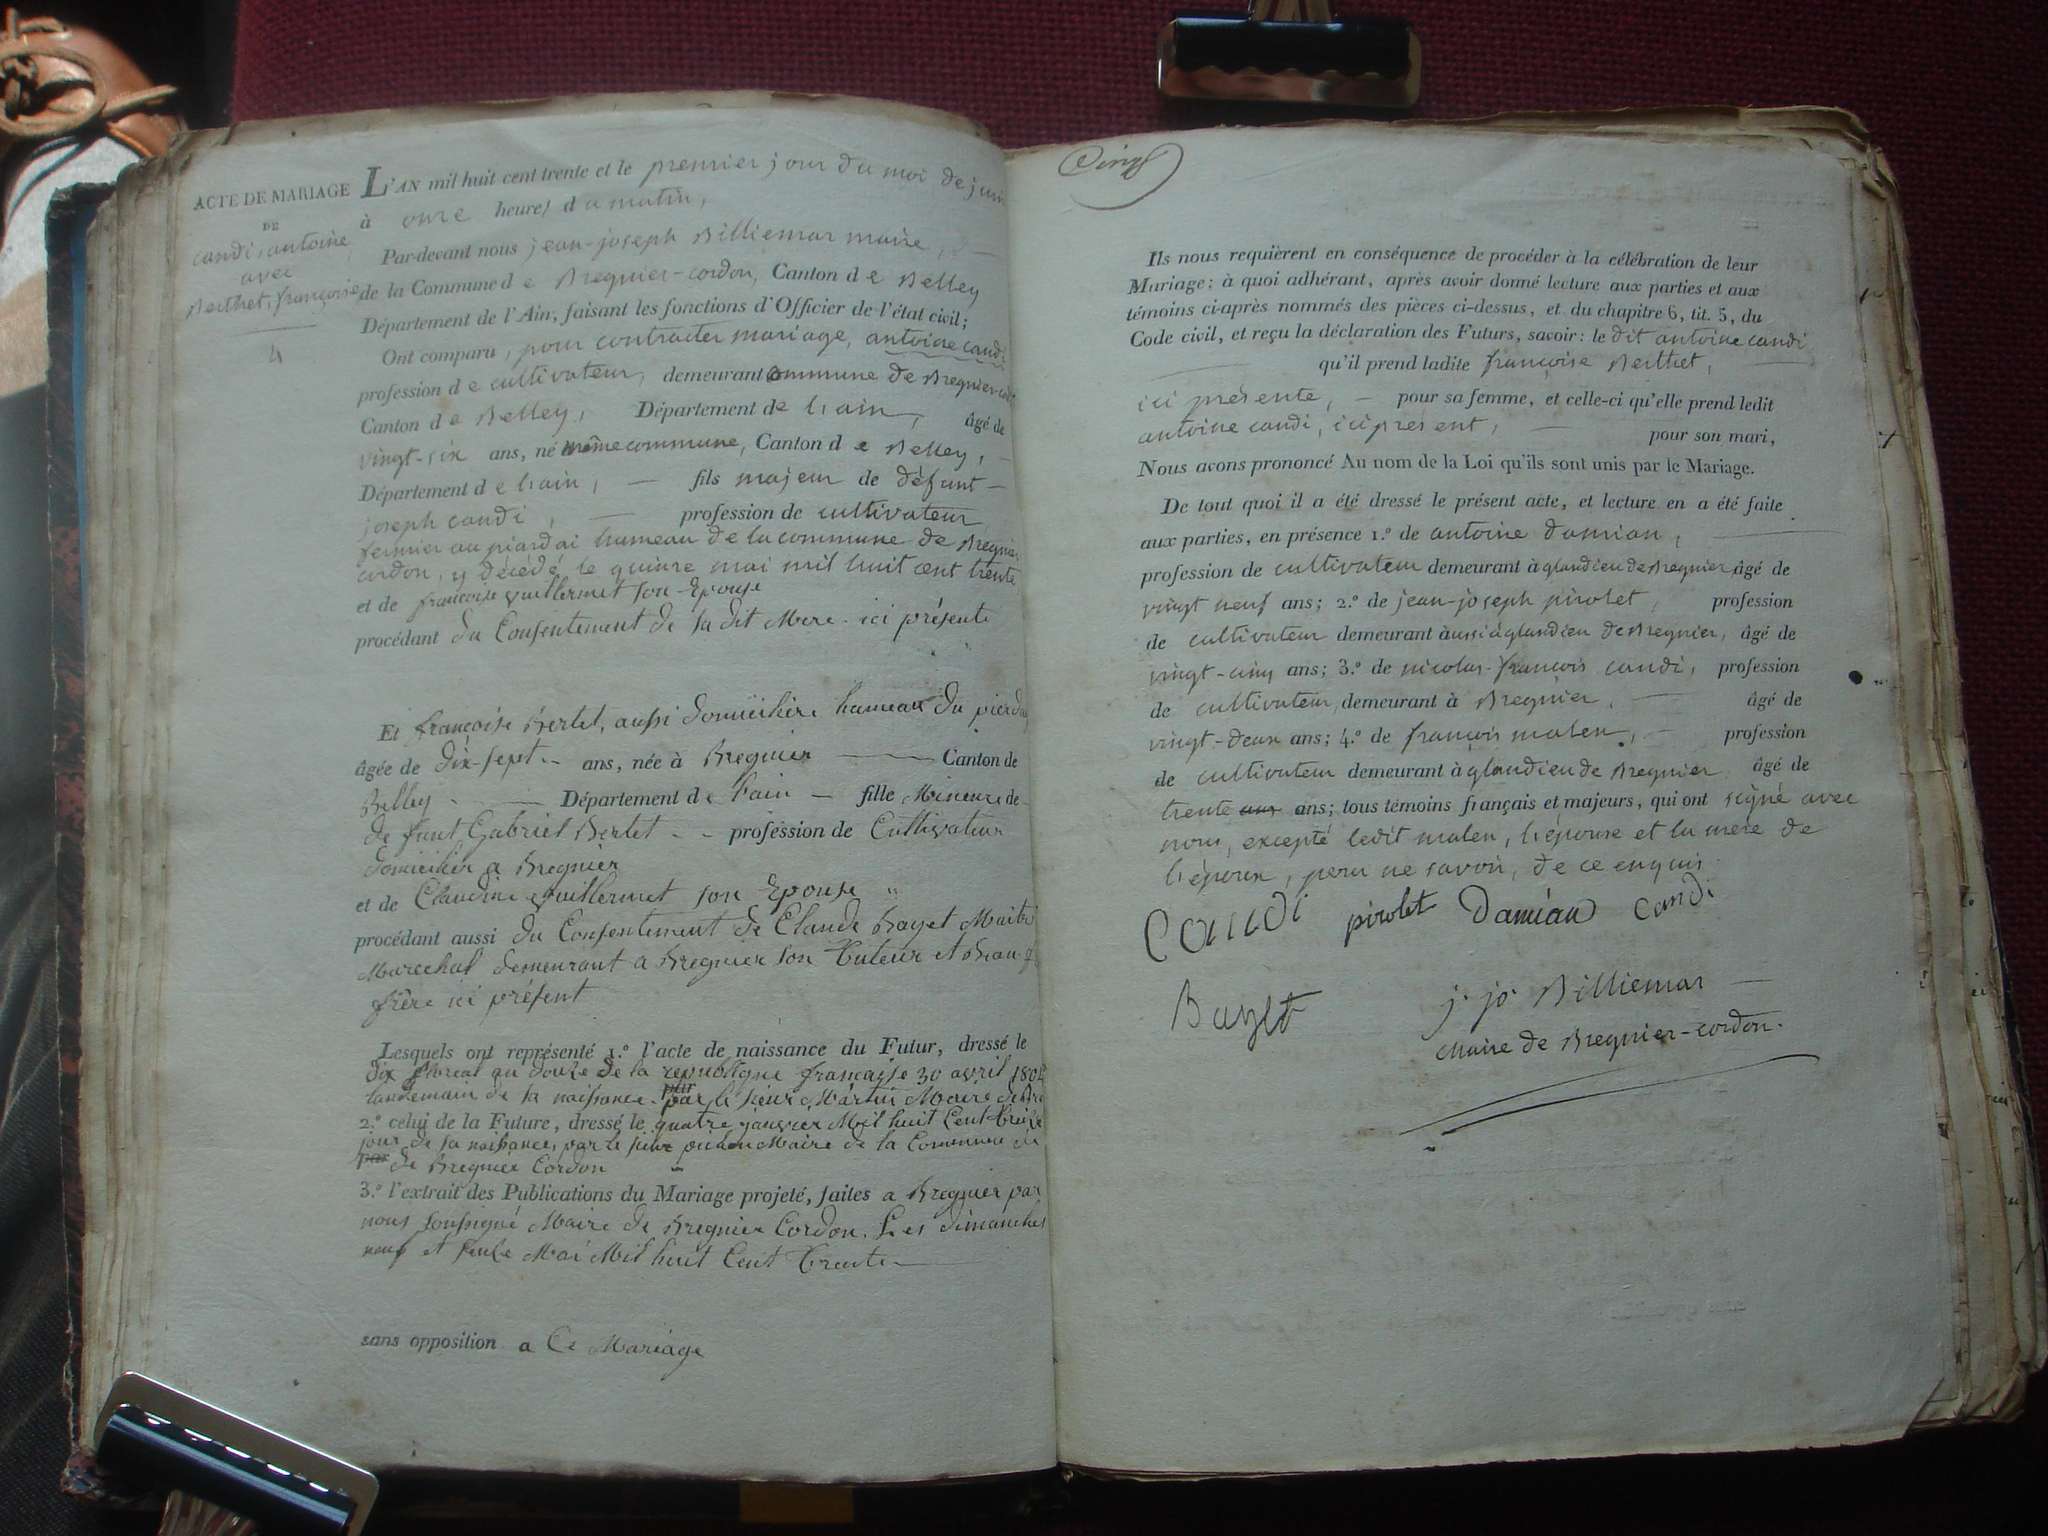 ACTE DE MARIAGE
DE
candi, antoine
avec
Berthet, françoise
4
L'AN mil huit cent trente et le premier jour du moi de juin
à onze heures du matin,
Par-devant nous jean-joseph Billiemar maire,
de la Commune de Bregnier-cordon, Canton de Belley
Département de l'Ain, faisant les fonctions d'Officier de l'état civil;
Ont comparu, pour contracter mariage, antoine candi
profession de cultivateur, demeurant commune de Bregnier-cord
Canton de Belley, Département de l'ain, âgé de
vingt-six ans, né même commune, Canton de Belley,
Département de l'ain, fils majeur de défunt
joseph candi, profession de cultivateur
fermier au piardai hameau de la commune de Bregnier
cordon, y décédé le quinze mai mil huit cent trente
et de françoise guillermet son Epouse
procédant du Consentement de sa dit Mere ici présente
Et françoise Bertet, aussi domiciliere hameau du pierda
âgée de dix-sept ans, née à Bregnier Canton de
Belley Département de l'ain fille Mineure de
de funt Gabriel Bertet profession de Cultivateur
domicilier a Bregnier
et de Claudine guillermet son Epouse
procédant aussi du Consentement de Claude Bayet Maitre
Marechal demeurant a Bregnier son tuteur et Beau
frère ici présent
Lesquels ont représenté 1.º l'acte de naissance du Futur, dressé le
dix floreal an douze de la republique francaise 30 avril 1804
landemain de sa naissance par par le sieur Martin Maire de Bre
2.º celui de la Future, dressé le quatre janvier Mil huit Cent treize
jour de sa naissance, par le sieur Maire de la Commune de
par de Bregnier Cordon
3.º l'extrait des Publications du Mariage projeté, faites a Bregnier par
nous soussigné Maire de Bregnier Cordon. Les dimanches
neuf et seize Mai Mil huit Cent trente
sans opposition a Ce Mariage
Cinq
Ils nous requièrent en conséquence de procéder à la célébration de leur
Mariage; à quoi adhérant, après avoir donné lecture aux parties et aux
témoins ci-après nommés des pièces ci-dessus, et du chapitre 6, tit. 5, du
Code civil, et reçu la déclaration des Futurs, savoir: le dit antoine candi
qu'il prend ladite françoise Berthet,
ici présente, pour sa femme, et celle-ci qu'elle prend ledit
antoine candi, ici présent, pour son mari,
Nous avons prononcé Au nom de la Loi qu'ils sont unis par le Mariage.
De tout quoi il a été dressé le présent acte, et lecture en a été faite
aux parties, en présence 1.º de antoine damian,
profession de cultivateur demeurant à glandieu de Bregnier, âgé de
vingt neuf ans; 2.º de jean-joseph pirolet, profession
de cultivateur demeurant aussi à glandieu de Bregnier, âgé de
vingt-cinq ans; 3.º de nicolas-françois candi, profession
de cultivateur, demeurant à Bregnier, âgé de
vingt-deux ans; 4.º de françois malen, profession
de cultivateur demeurant à glandieu de Bregnier âgé de
trente ans ans; tous témoins français et majeurs, qui ont signé avec
nous, excepté ledit malen, l'épouse et la mère de
l'époux, pour ne savoir, de ce enquis
Candi pirolet Damian candi
Bayet j. jo Billiemar
Maire de Bregnier-cordon.